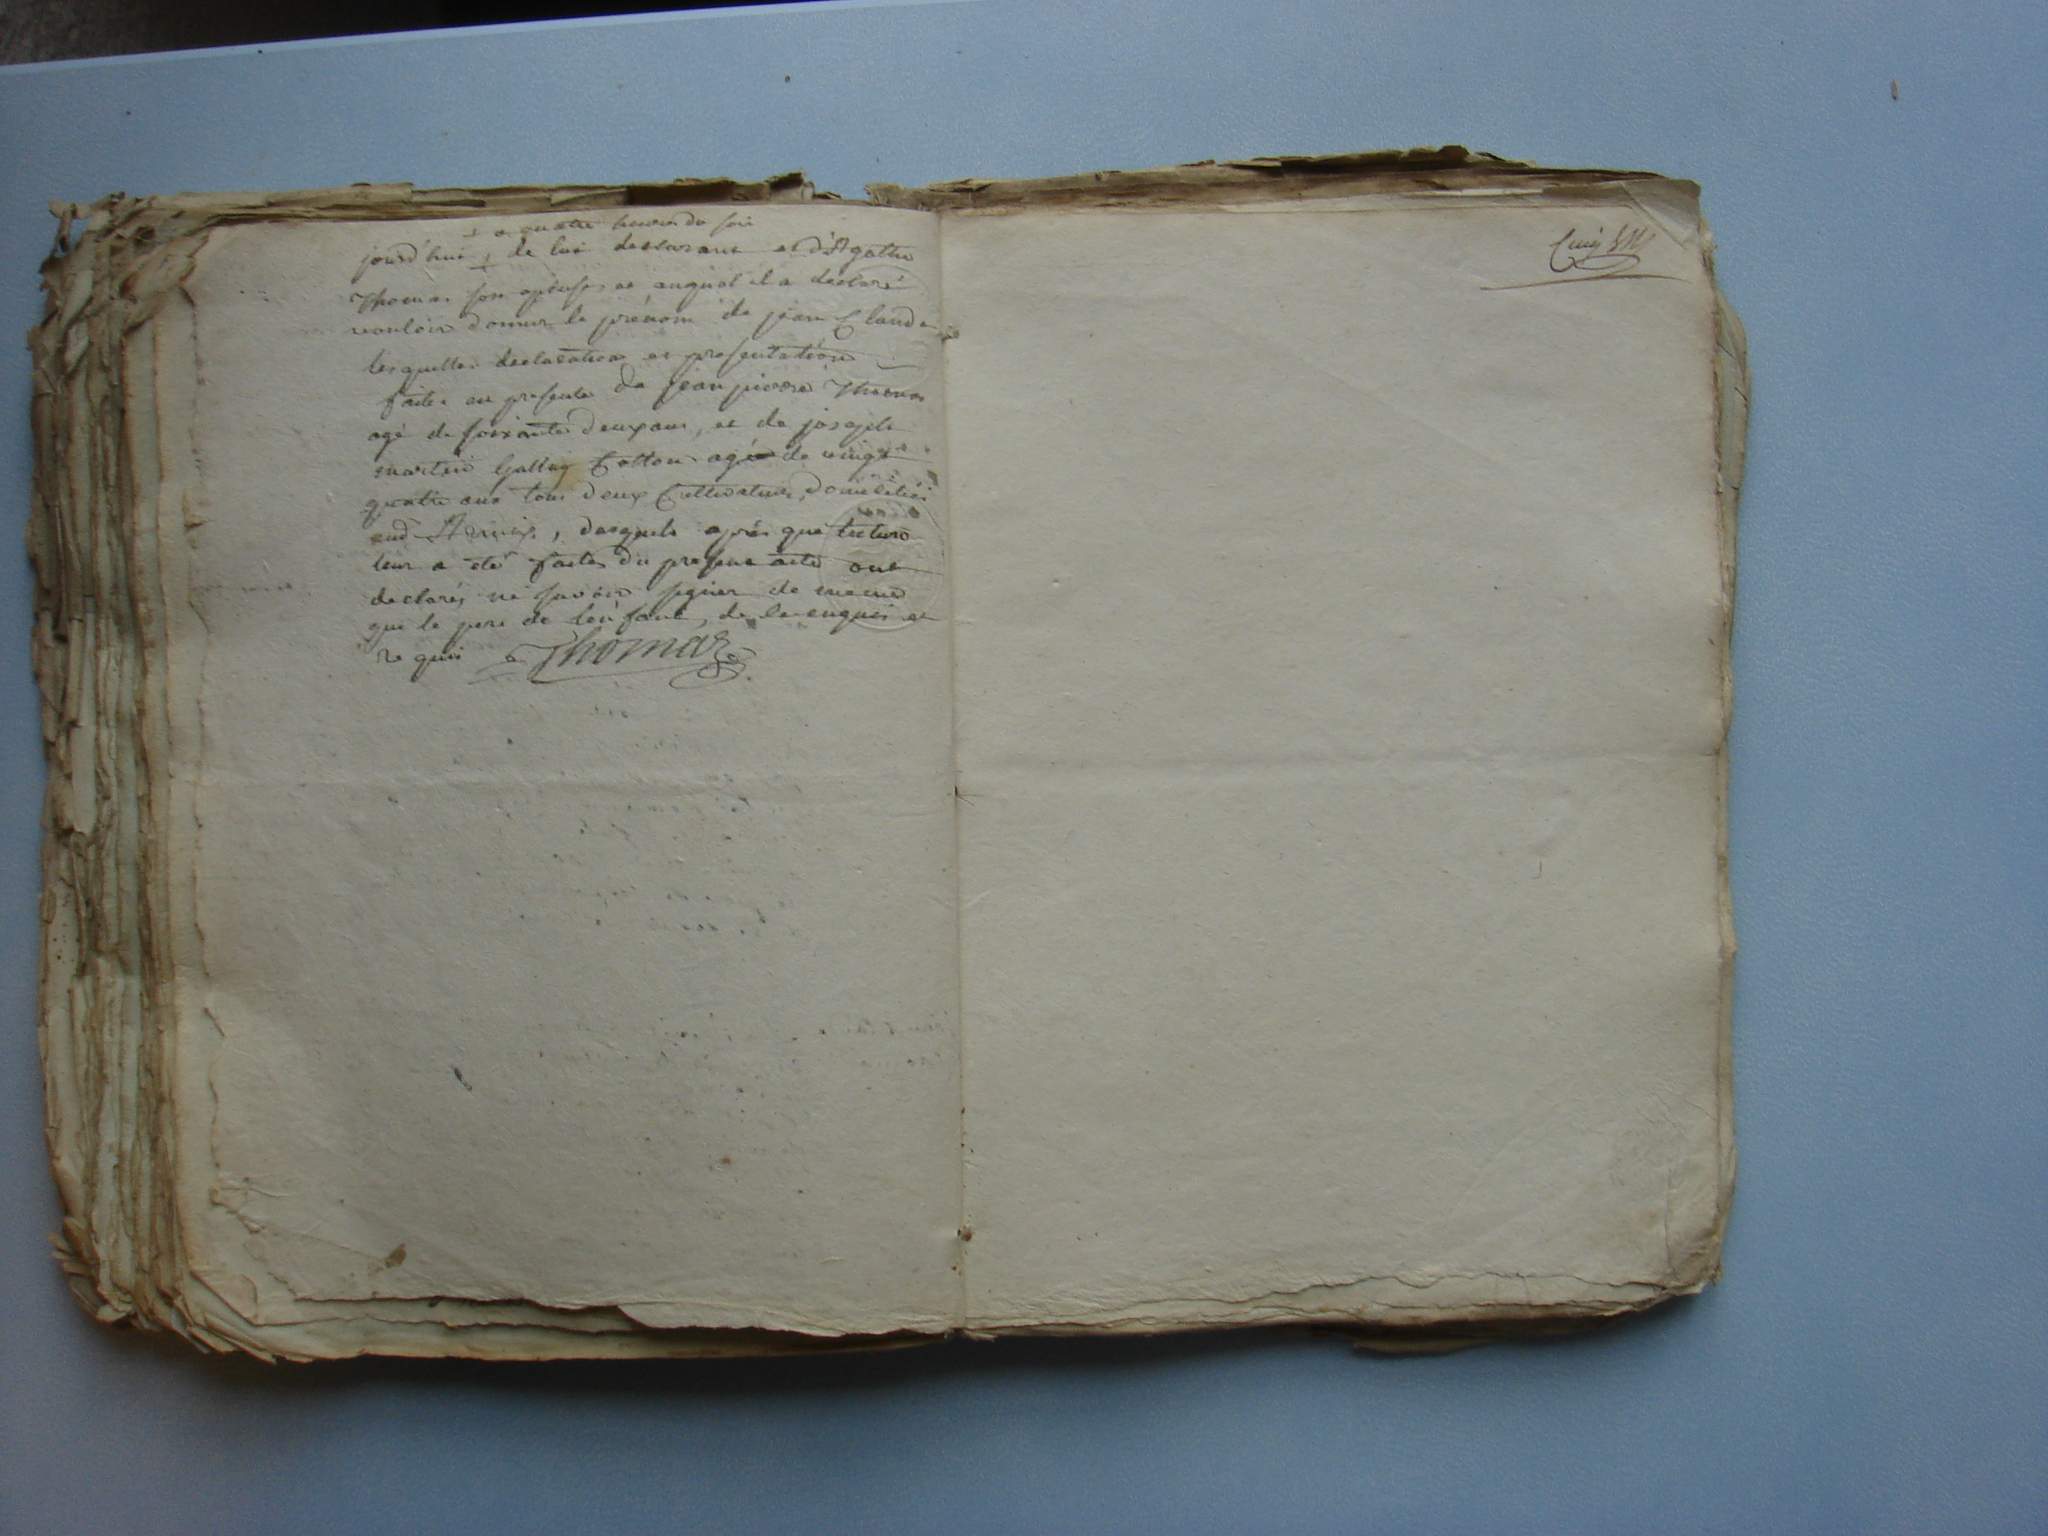 + a quatre heures du soir
jourd'hui + de lui declarant et d'Agathe
Thomas son epouse et auquel il a declaré
vouloir donner le prénom de jean Claude
lesquelles declaration et presentation
faite en presente de jean pierre Thomas
agé de soixante deux ans, et de joseph
martin Gallay Cotton agé de vingt
quatre ans tous deux Cultivateurs, domiciliés
aud , desquels après que lecture
leur a été faite du present acte ont
declarés ne savoir signer de meme
que le pere de l'enfant, de ce enquis et
requis Thomas